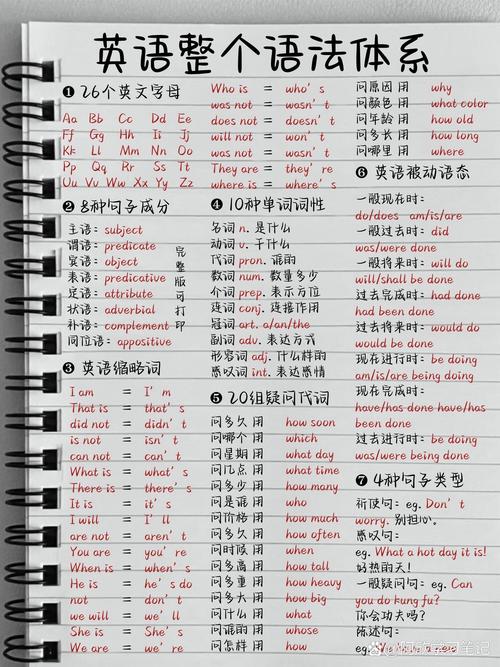 英语整个语法体系
❶ 26个英文字母
Aa Bb Cc Dd Ee
Ff Gg Hh Ii Jj
Kk Ll Mm Nn Oo
Pp Qq Rr Ss Tt
Uu Vv Ww Xx Yy Zz
❷ 8种句子成分
主语: subject
谓语: predicate
宾语: object
表语: predicative
定语: attribute
状语: adverbial
补语: complement
同位语: appositive
完整版可打印
❸ 英语缩略词
I am = I'm
That is = that's
did not = didn't
is not = isn't
can not = can't
What is = what's
There is = there's
It is = it's
I will = I'll
are not = aren't
You are = you're
When is = when's
He is = he's do
not = don't
we will = we'll
She is = She's
We are = we're
Who is = who's
was not = wasn't
does not = doesn't
will not = won't
was not = wasn't
They are = they're
where is = where's
❹ 10种单词词性
名词 n. 是什么
动词 v. 干什么
代词 pron. 谁的
数词 num. 数量多少
介词 prep. 表示方位
连词 conj. 连接作用
冠词 art. a/an/the
副词 adv. 表达方式
形容词 adj. 什么样的
感叹词 int. 表达感情
❺ 20组疑问代词
问多久 用 how soon
问哪个 用 which
问星期 用 what day
问几点 用 what time
问多少 用 how many
问是谁 用 who
问价格 用 how much
问多久 用 how often
问时候 用 when
问多高 用 how tall
问多重 用 how heavy
问多大 用 how big
问什么 用 what
问谁的 用 whose
问怎样 用 how
问原因 用 why
问颜色 用 what color
问年龄 用 how old
问多长 用 how long
问哪里 用 where
❻ 英语被动语态
一般现在时:
do/does am/is/are
一般过去时: did
was/were done
一般将来时: will do
will/shall be done
过去完成时: had done
had been done
过去将来时: would do
would be done
现在进行时: be doing
am/is/are being doing
现在完成时:
have/has done have/has
been done
过去进行时: be doing
was/were being done
❼ 4种句子类型
祈使句: eg. Don't
worry. 别担心。
感叹句:
eg. What a hot day it is!
好热的天!
一般疑问句: eg. Can
you do kung fu?
你会功夫吗?
陈述句:
eg.